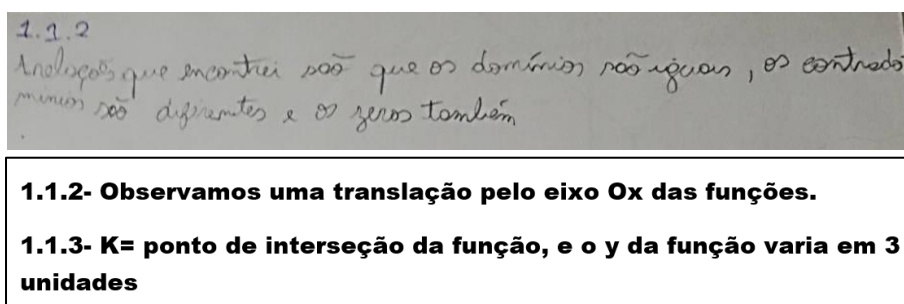 1.1.2
Analogas que encontrei são que os domínios são iguais, os contrado
minios são diferentes e os zeros também
1.1.2- Observamos uma translação pelo eixo Ox das funções.
1.1.3- K= ponto de interseção da função, e o y da função varia em 3
unidades